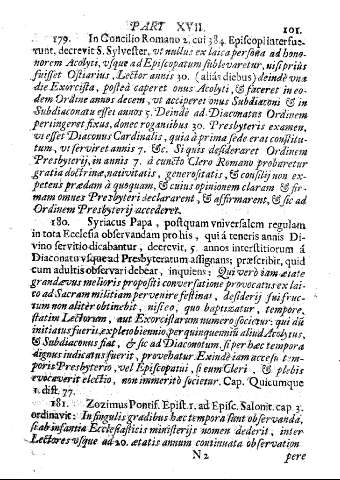 PART XVII. 101.
179. In Concilio Romano 2, cui 384. Episcopi interfue-
runt, decrevit S. Sylvester, ut nullus ex laica persona ad hono-
norem Acolyti, usque ad Episcopatum sublevaretur, nisi priùs
fuisset Ostiarius, Lector annis 30. (aliàs diebus) deindè unâ
die Exorcista, posteà caperet onus Acolyti, & faceret in eo-
dem Ordine annos decem, ut acciperet onus Subdiaconi & in
Subdiaconatu esset annos 5. Deindè ad Diaconatus Ordinem
pertingeret fixus, donec rogantibus 30. Presbyteris examen,
ut esset Diaconus Cardinalis, quia à prima sede erat constitu-
tum, ut serviret annis 7. &c. Si quis desideraret Ordinem
Presbyterij, in annis 7. à cuncto Clero Romano probaretur
gratia doctrinæ, nativitatis, generositatis, & consilij non ex-
petens prædam à quoquam, & cuius opinionem claram & fir-
mam omnes Presbyteri declararent, & affirmarent, & sic ad
Ordinem Presbyterij accederet.
180. Syriacus Papa, postquam vniversalem regulam
in tota Ecclesia observandam pro his, qui á teneris annis Di-
vino servitio dicabantur, decrevit, 5. annos interstitiorum á
Diaconatu vsque ad Presbyteratum assignans; præscribit, quid
cum adultis observari debeat, inquiens: Qui verò iam ætate
grandævus melioris propositi conversatione provocatus ex lai-
co ad Sacram militiam pervenire festinat, desiderij sui fruc-
tum non aliter obtinebit, nisi eo, quo baptizatur, tempore,
statim Lectorum, aut Exorcistarum numero societur: qui dũ
initiatus fuerit, expleto biennio, per quinquemiũ aliud Acolytus,
& Subdiaconus fiat, & sic ad Diaconatum, si per hæc tempora
dignus iudicatus fuerit, provebatur. Exindè iam accessu tem-
poris Presbyterio, vel Episcopatui, si eum Cleri, & plebis
evocaverit electio, non immeritò societur. Cap. Quicumque
1. dist. 77.
181. Zozimus Pontif. Epist. 1. ad Episc. Salonit. cap. 3.
ordinavit: In singulis gradibus hæc tempora sunt observanda,
si ab infantia Ecclesiasticis ministerijs nomen dederit, inter
Lectores usque ad 20. ætatis annum continuata observatione
N 2 pere